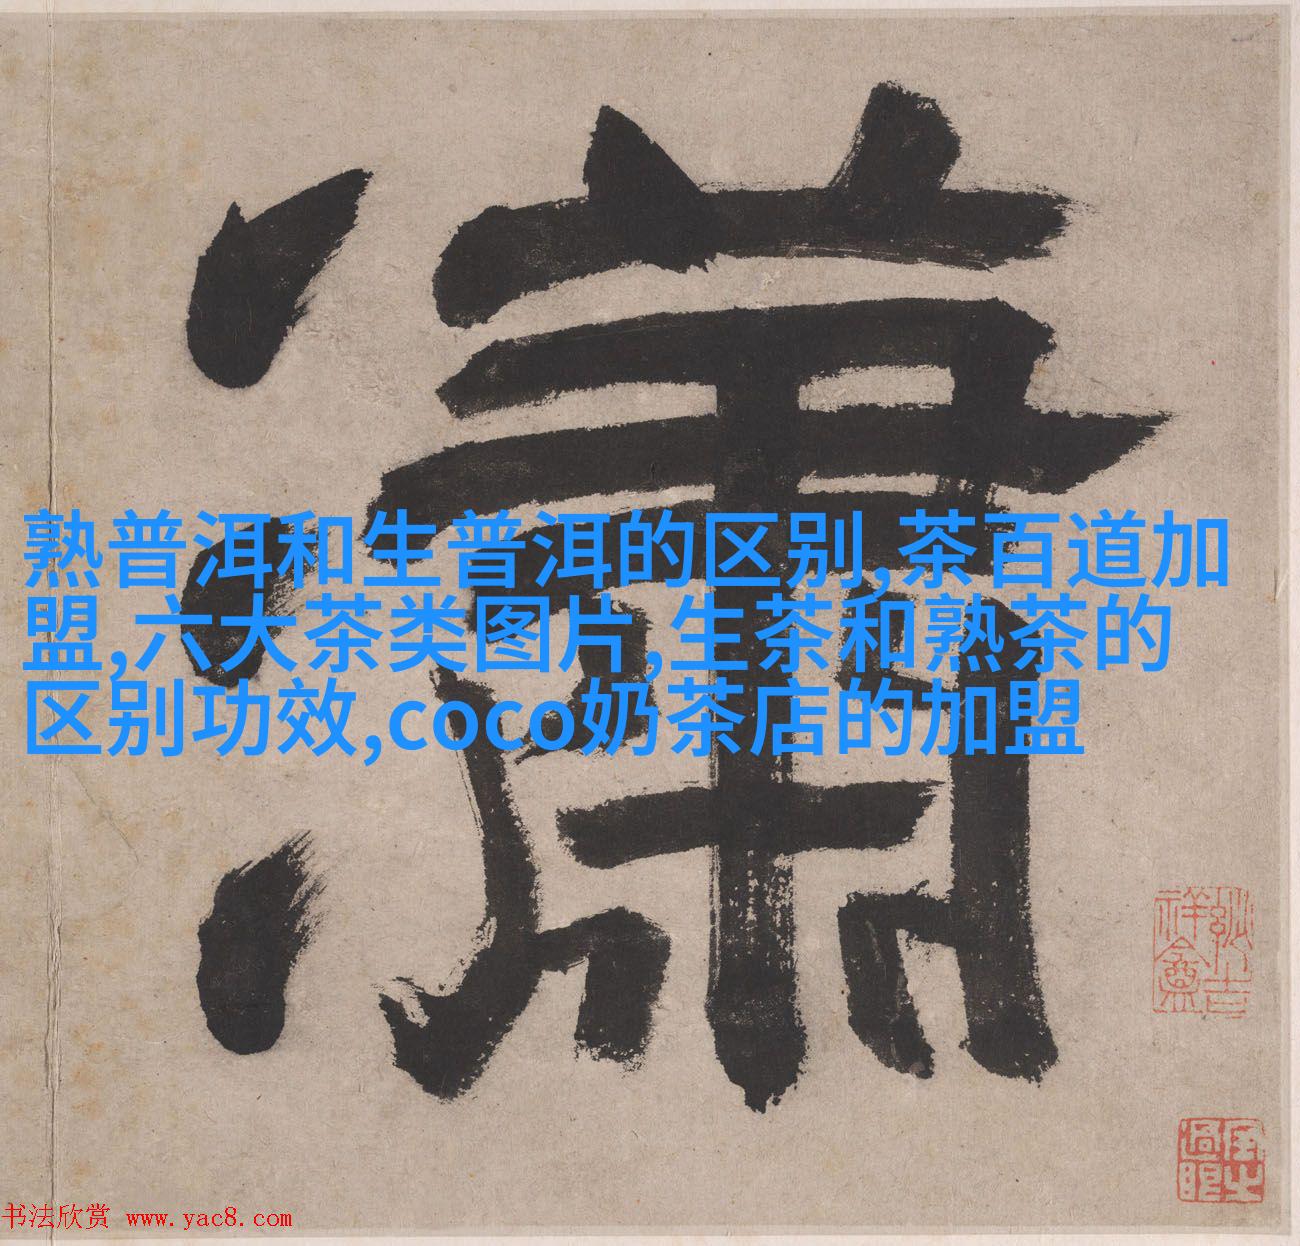 潇
熟普洱和生普洱的区别,茶百道加
盟,六大茶类图片,生茶和熟茶的
区别功效,coco奶茶店的加盟
书法欣赏 www.yac8.com